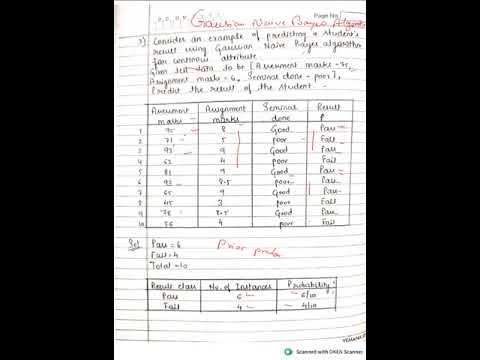 Gaussian Naive Bayes Algorithm
Page No.
3) Consider an example of predicting a student's
result using Gaussian Naive Bayes algorithm
for continous attribute
Given test data to be [Assessment marks - 75,
Assignment marks - 6, Seminar done - poor],
Predict the result of the student.
Assessment marks Assignment marks Seminar done Result
1 95 8 Good Pass
2 71 5 poor Fail
3 93 9 Good Pass
4 62 4 poor Fail
5 81 9 Good Pass
6 93 8.5 poor Pass
7 65 9 Good Pass
8 45 3 poor Fail
9 78 8.5 Good Pass
10 56 4 poor Fail
Sol
Pass = 6
Fail = 4
Total = 10
Prior
Result class No. of Instances Probability
Pass 6 6/10
Fail 4 4/10
Scanned with OKEN Scanner